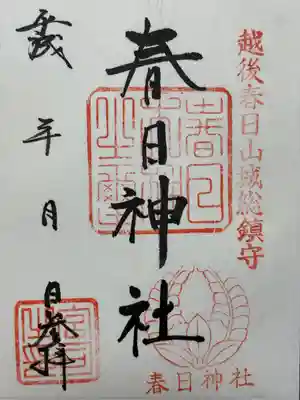 越後春日山城総鎮守
春日神社
年月
日参拝
春日神社